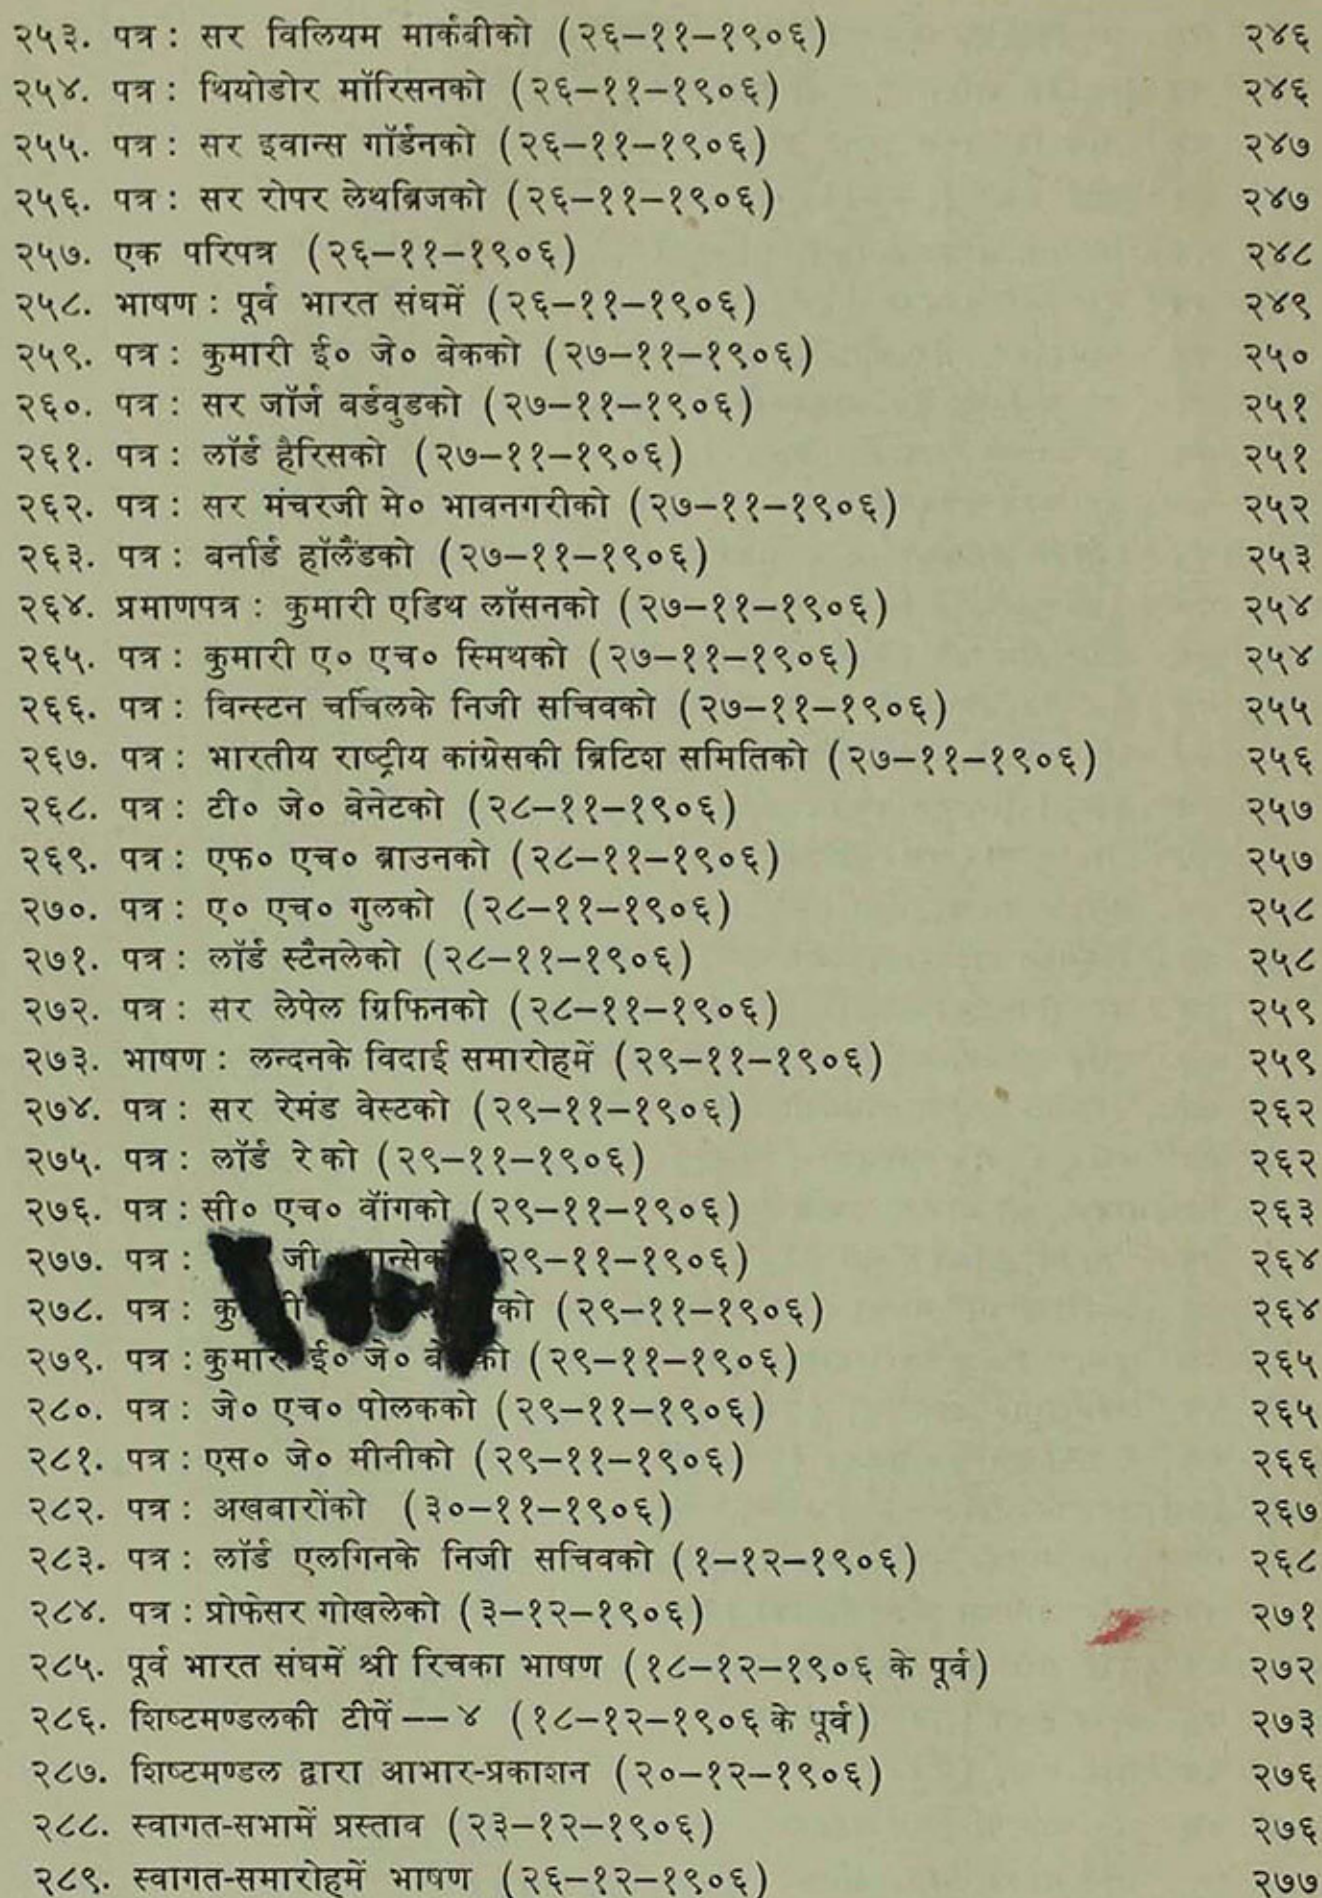 २५३. पत्र : सर विलियम मार्कबीको (२६–११–१९०६) २४६
२५४. पत्र : थियोडोर मॉरिसनको (२६–११–१९०६) २४६
२५५. पत्र : सर इवान्स गॉर्डनको (२६–११–१९०६) २४७
२५६. पत्र : सर रोपर लेथब्रिजको (२६–११–१९०६) २४७
२५७. एक परिपत्र (२६–११–१९०६) २४८
२५८. भाषण : पूर्व भारत संघमें (२६–११–१९०६) २४९
२५९. पत्र : कुमारी ई० जे० बेकको (२७–११–१९०६) २५०
२६०. पत्र : सर जॉर्ज बर्डवुडको (२७–११–१९०६) २५१
२६१. पत्र : लॉर्ड हैरिसको (२७–११–१९०६) २५१
२६२. पत्र : सर मंचरजी मे० भावनगरीको (२७–११–१९०६) २५२
२६३. पत्र : बर्नार्ड हॉलैंडको (२७–११–१९०६) २५३
२६४. प्रमाणपत्र : कुमारी एडिथ लॉसनको (२७–११–१९०६) २५४
२६५. पत्र : कुमारी ए० एच० स्मिथको (२७–११–१९०६) २५४
२६६. पत्र : विन्स्टन चर्चिलके निजी सचिवको (२७–११–१९०६) २५५
२६७. पत्र : भारतीय राष्ट्रीय कांग्रेसकी ब्रिटिश समितिको (२७–११–१९०६) २५६
२६८. पत्र : टी० जे० बेनेटको (२८–११–१९०६) २५७
२६९. पत्र : एफ० एच० ब्राउनको (२८–११–१९०६) २५७
२७०. पत्र : ए० एच० गुलको (२८–११–१९०६) २५८
२७१. पत्र : लॉर्ड स्टैनलेको (२८–११–१९०६) २५८
२७२. पत्र : सर लेपेल ग्रिफिनको (२८–११–१९०६) २५९
२७३. भाषण : लन्दनके विदाई समारोहमें (२९–११–१९०६) २५९
२७४. पत्र : सर रेमंड वेस्टको (२९–११–१९०६) २६२
२७५. पत्र : लॉर्ड रेको (२९–११–१९०६) २६२
२७६. पत्र : सी० एच० वॉंगको (२९–११–१९०६) २६३
२७७. पत्र : जी (२९–११–१९०६) २६४
२७८. पत्र : (२९–११–१९०६) २६४
२७९. पत्र : कुमारी ई० जे० (२९–११–१९०६) २६५
२८०. पत्र : जे० एच० पोलकको (२९–११–१९०६) २६५
२८१. पत्र : एस० जे० मीनीको (२९–११–१९०६) २६६
२८२. पत्र : अखबारोंको (३०–११–१९०६) २६७
२८३. पत्र : लॉर्ड एलगिनके निजी सचिवको (१–१२–१९०६) २६८
२८४. पत्र : प्रोफेसर गोखलेको (३–१२–१९०६) २७१
२८५. पूर्व भारत संघमें श्री रिचका भाषण (१८–१२–१९०६ के पूर्व) २७२
२८६. शिष्टमण्डलकी टीपें –– ४ (१८–१२–१९०६ के पूर्व) २७३
२८७. शिष्टमण्डल द्वारा आभार-प्रकाशन (२०–१२–१९०६) २७६
२८८. स्वागत-सभामें प्रस्ताव (२३–१२–१९०६) २७६
२८९. स्वागत-समारोहमें भाषण (२६–१२–१९०६) २७७